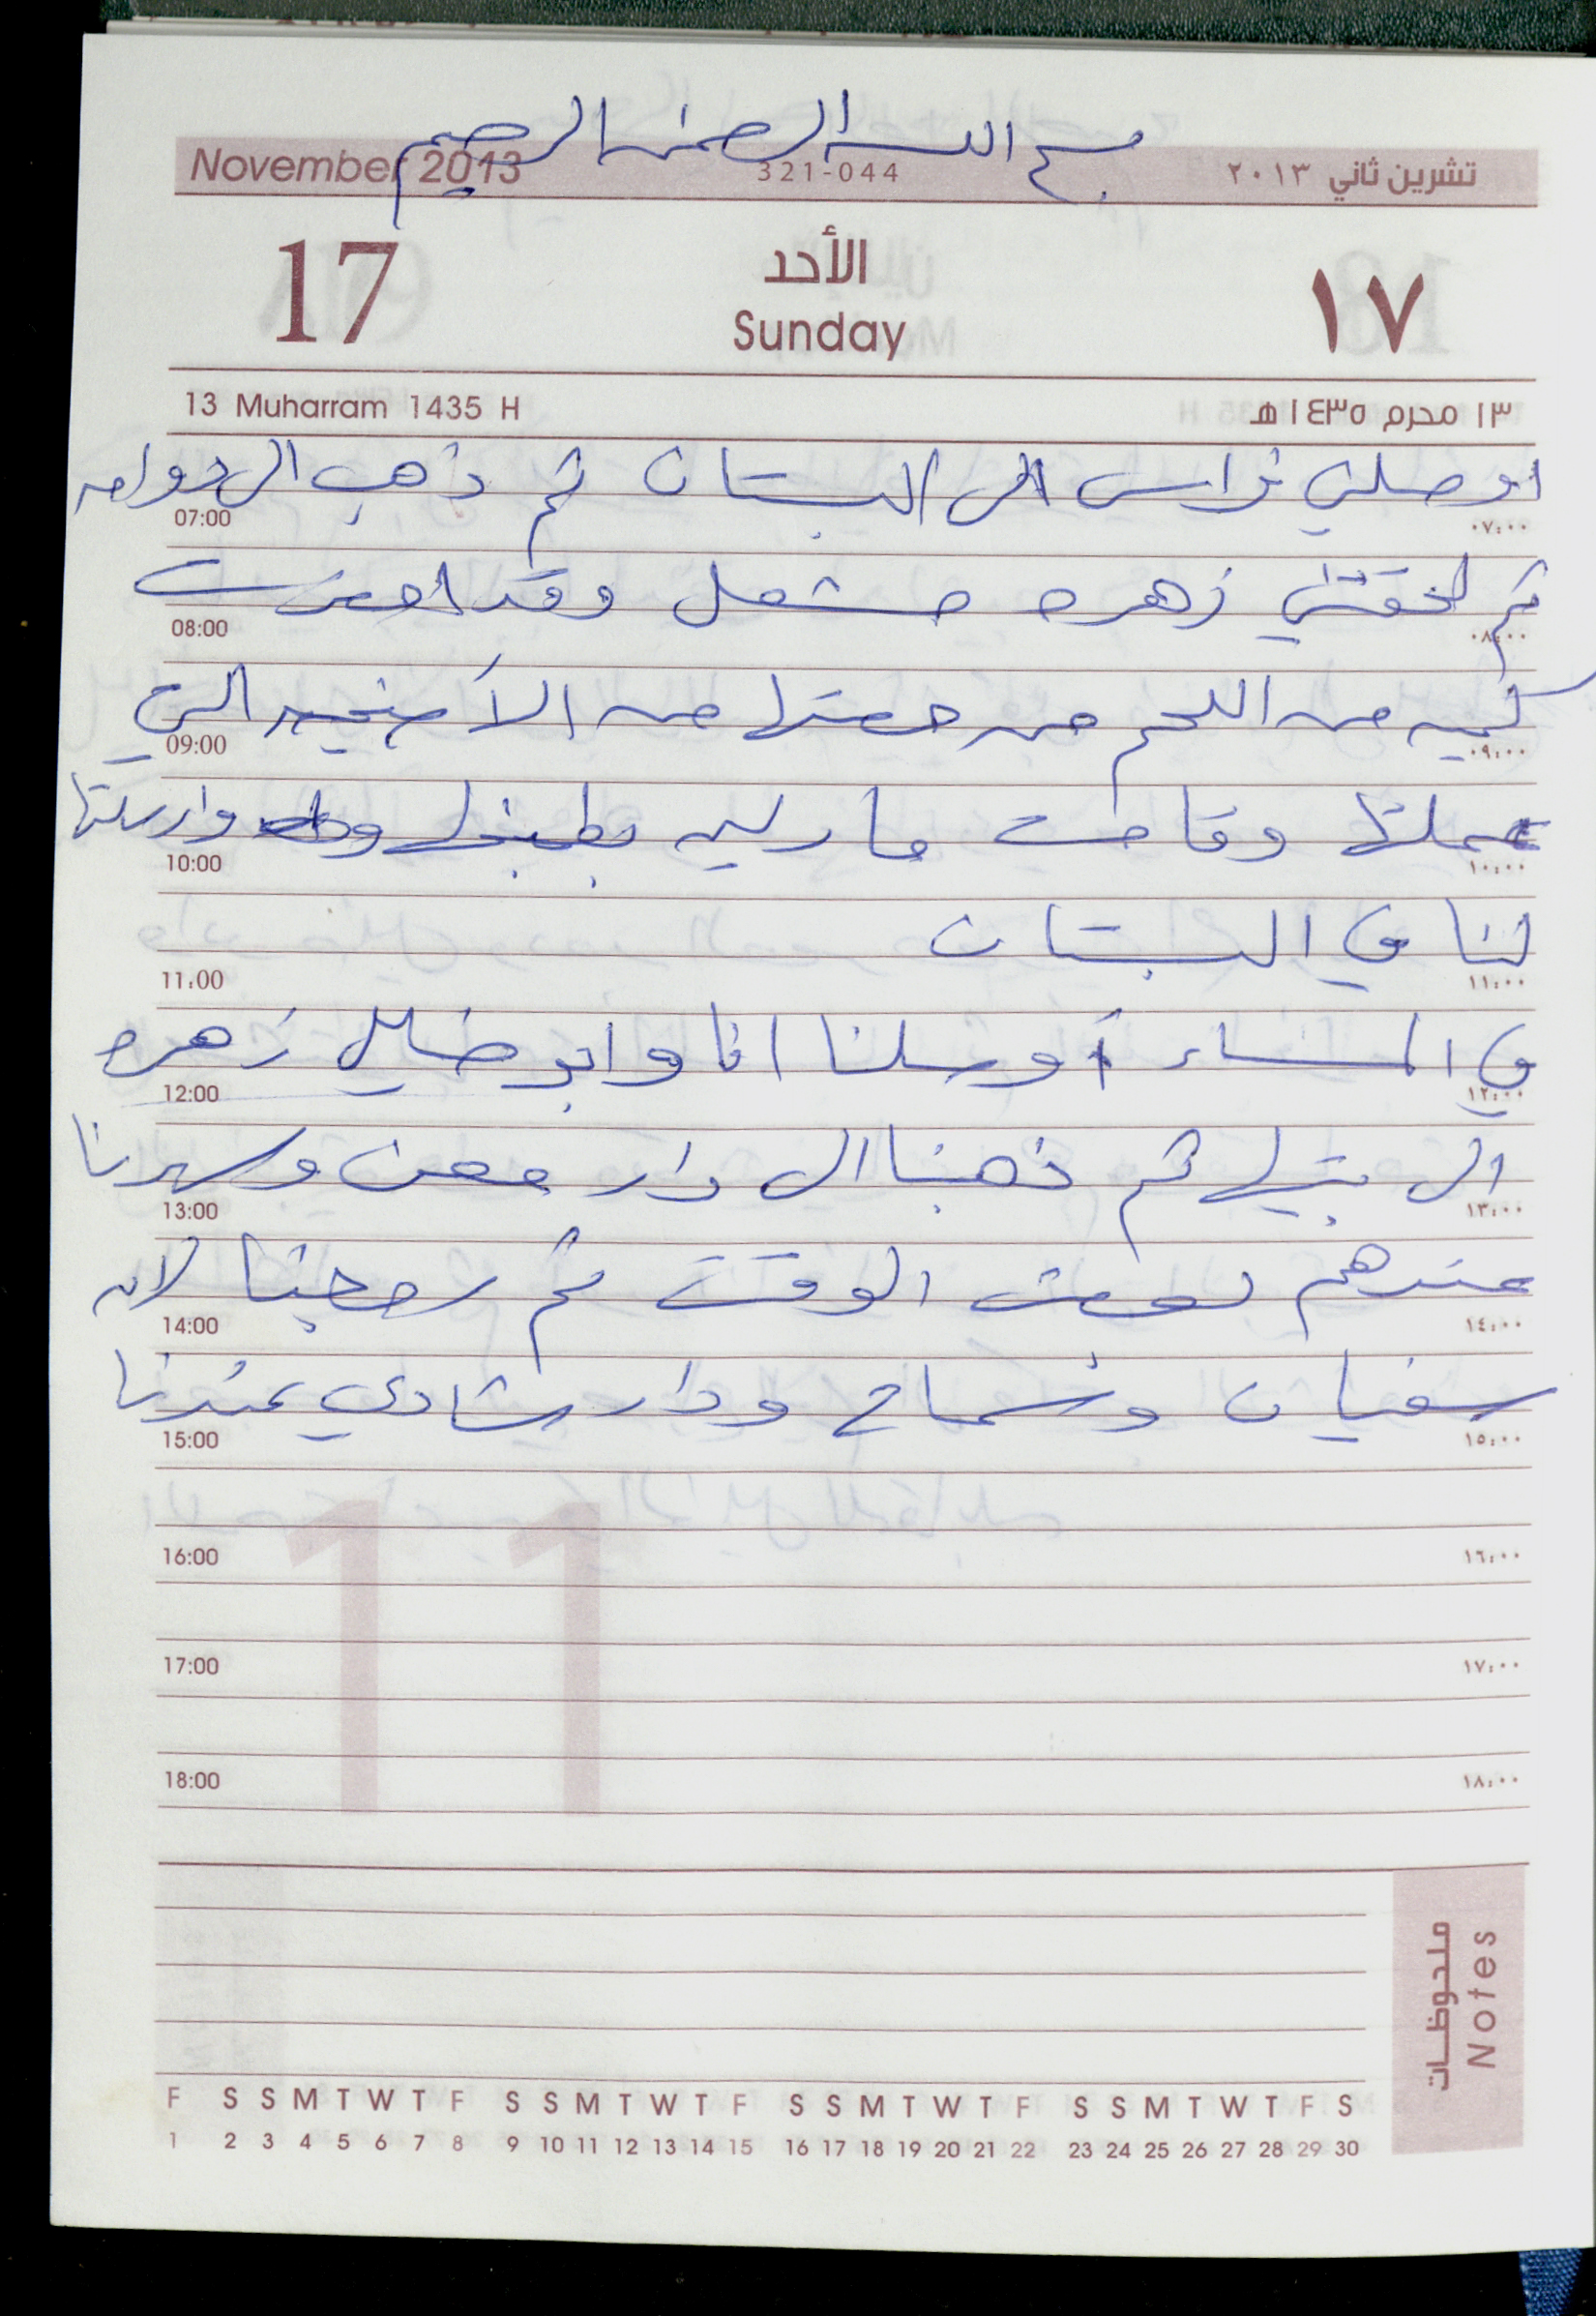 بسم الله الرحمن الرحيم
November 2013 321-044 تشرين ثاني ٢٠١٣
17 الأحد ١٧
Sunday
13 Muharram 1435 H ١٣ محرم ١٤٣٥ هـ
اوصلني نراس الى البستان ثم ذهب الى دوامه
07:00 ٠٧:٠٠
ثم لحقتني زهره مشعل وقد احضرت
08:00 ٠٨:٠٠
كميه من اللحم من حصتها من الأضحيه التي
09:00 ٠٩:٠٠
عملتها وقامت ماريه بطبخها وارسلتها
10:00 ١٠:٠٠
لنا في البستان
11:00 ١١:٠٠
في المساء أوصلنا انا وابو خليل زهره
12:00 ١٢:٠٠
الى بيتها ثم ذهبنا الى دار معن وسهرنا
13:00 ١٣:٠٠
عندهم بعض الوقت ثم رجعنا لان
14:00 ١٤:٠٠
سفيان وسماح ودار شادي عندنا
15:00 ١٥:٠٠
16:00 ١٦:٠٠
17:00 ١٧:٠٠
18:00 ١٨:٠٠
11
ملحوظات Notes
F S S M T W T F S S M T W T F S S M T W T F S S M T W T F S
1 2 3 4 5 6 7 8 9 10 11 12 13 14 15 16 17 18 19 20 21 22 23 24 25 26 27 28 29 30